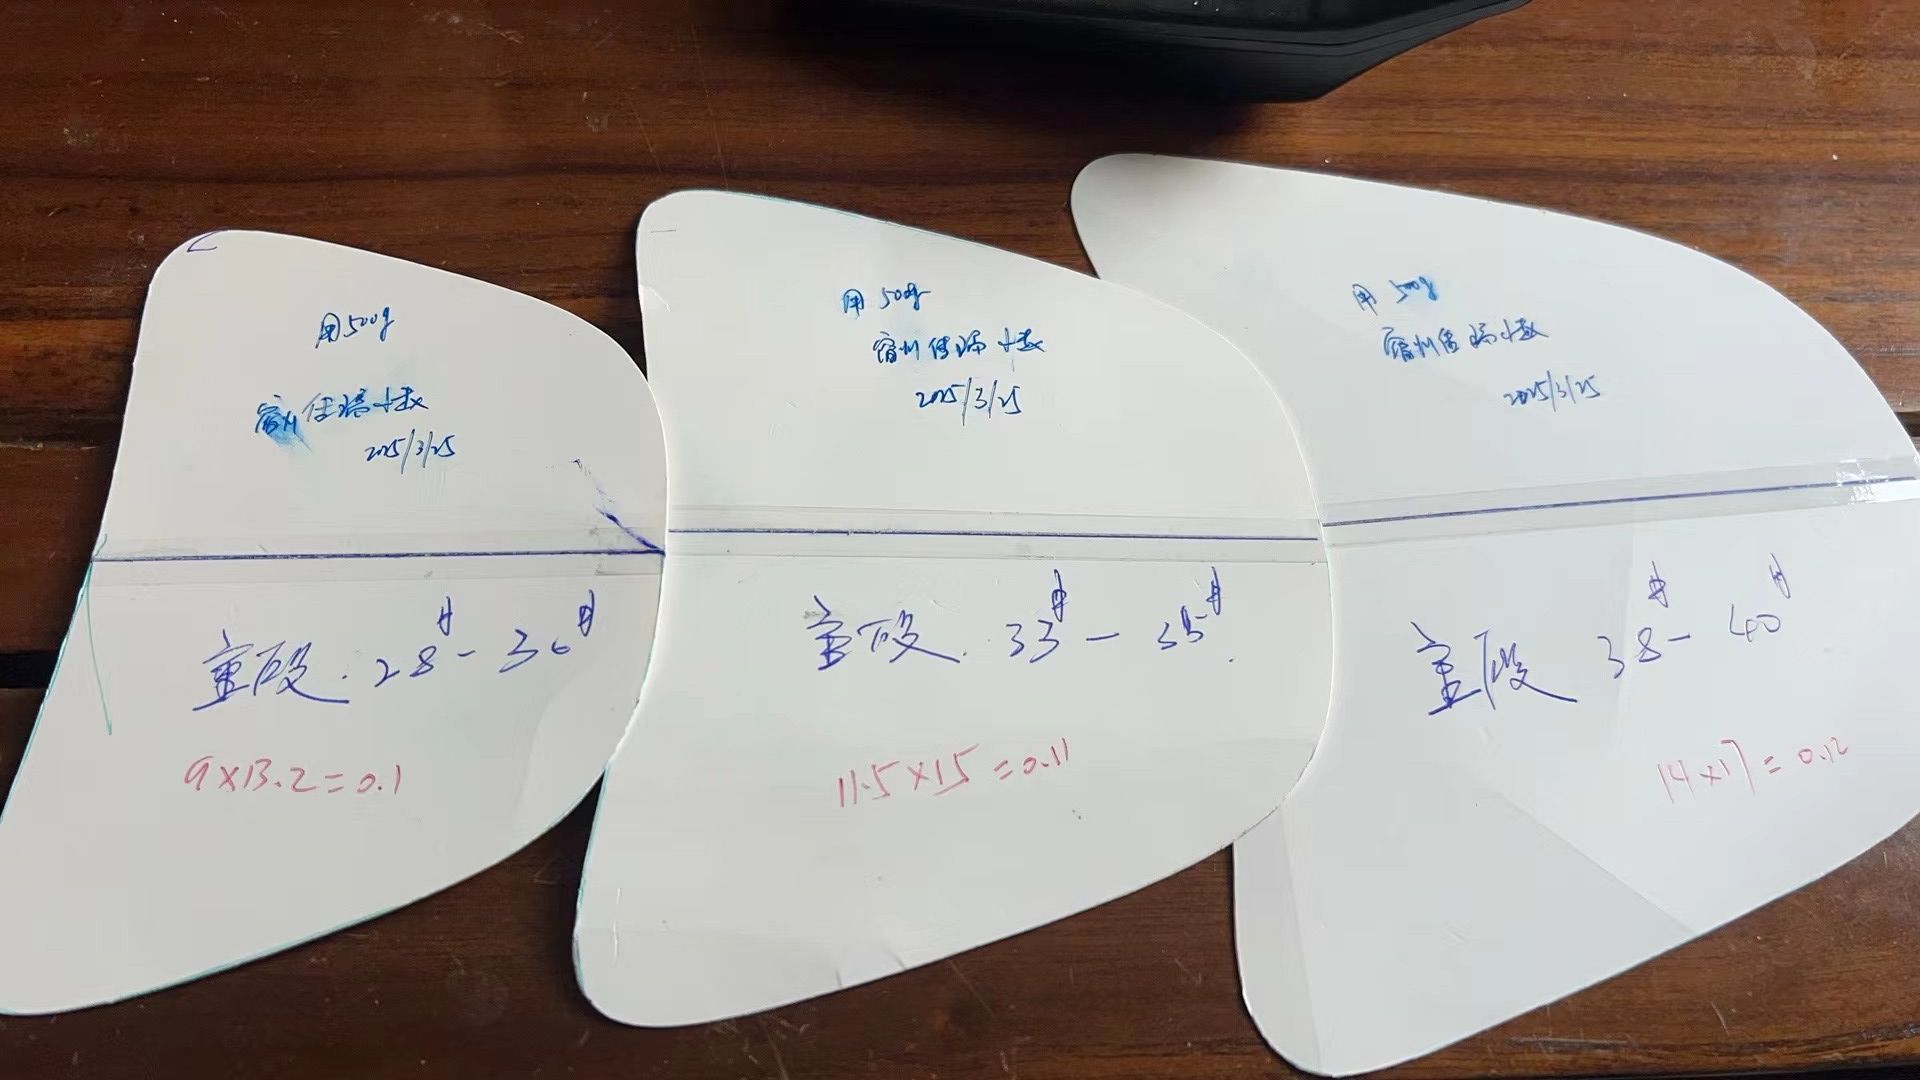 用500g
宿州佳瑞十数
2025/3/25
童段.28#-30#
9×13.2=0.1
用500g
宿州佳瑞十数
2025/3/25
童段.33#-35#.
11.5×15=0.11
用500g
宿州佳瑞十数
2025/3/25
童段 38#-40#
14×17=0.12